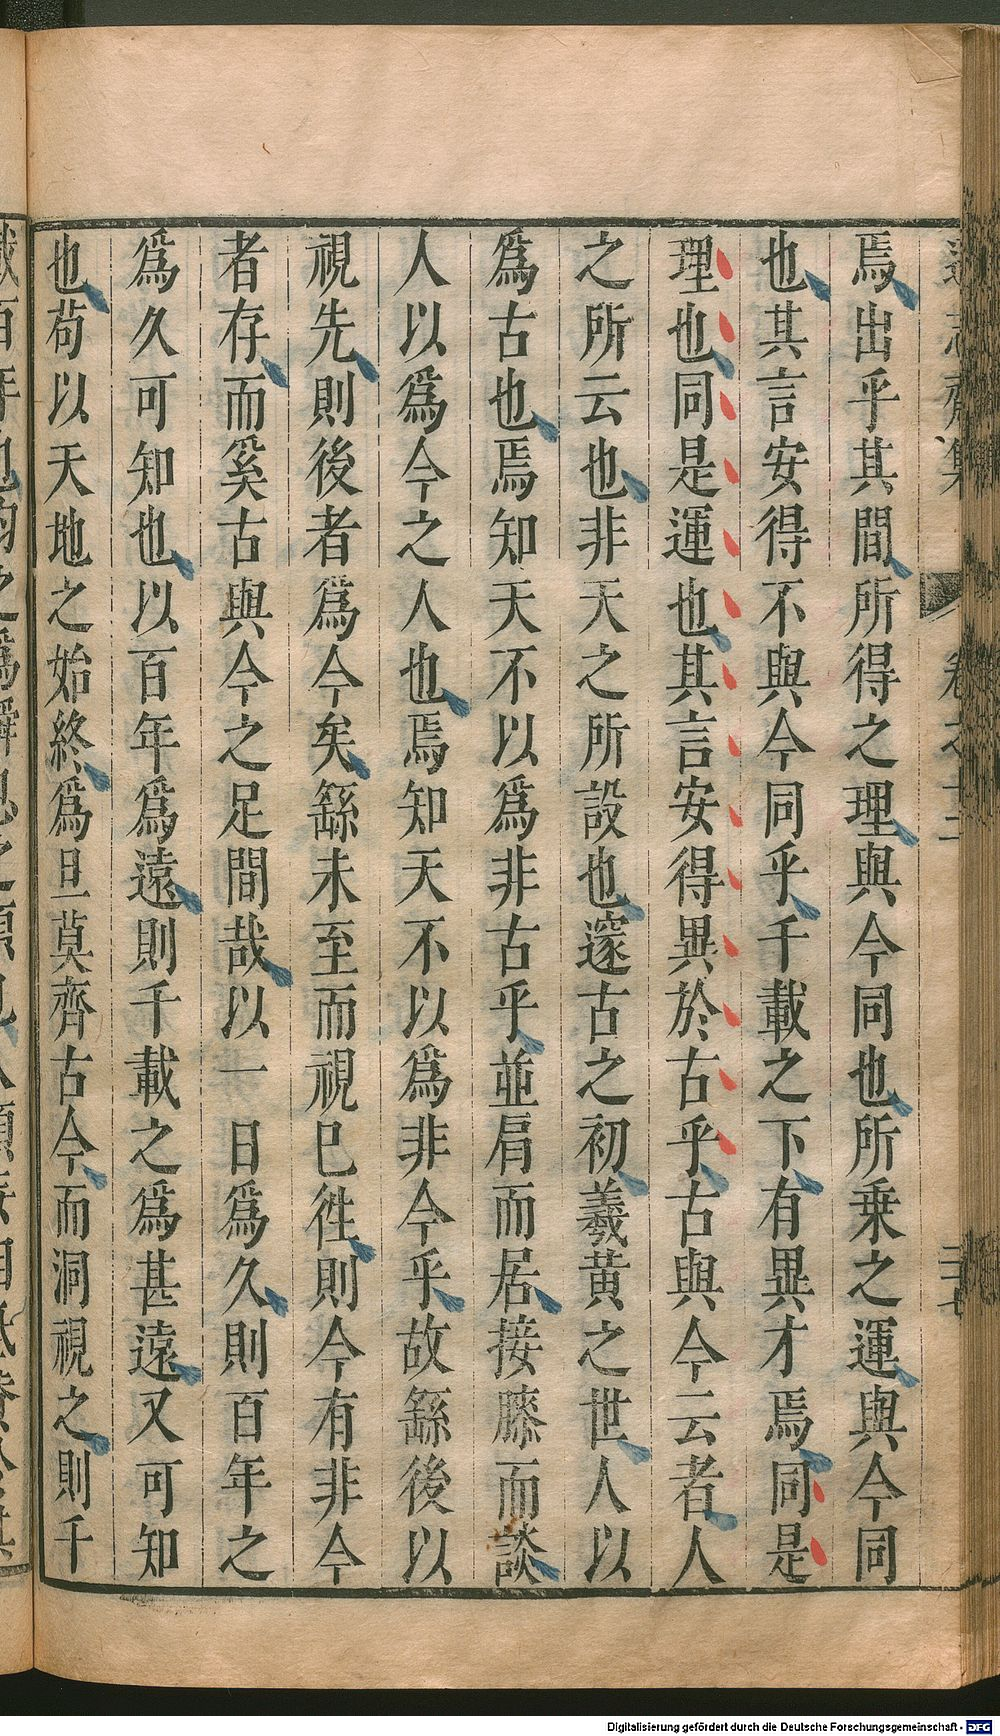 焉出乎其間所得之理與今同也所乗之運與今同
也其言安得不與今同乎千載之下有異才焉同是
理也同是運也其言安得異於古乎古與今云者人
之所云也非天之所設也邃古之初羲黄之世人以
爲古也焉知天不以爲非古乎並肩而居接膝而談
人以爲今之人也焉知天不以爲非今乎故繇後以
視先則後者爲今矣繇未至而視已徃則今有非今
者存而奚古與今之足間哉以一日爲久則百年之
爲久可知也以百年爲遠則千載之爲甚遠又可知
也苟以天地之始終爲旦莫齊古今而洞視之則千
Digitalisierung gefördert durch die Deutsche Forschungsgemeinschaft - DFG